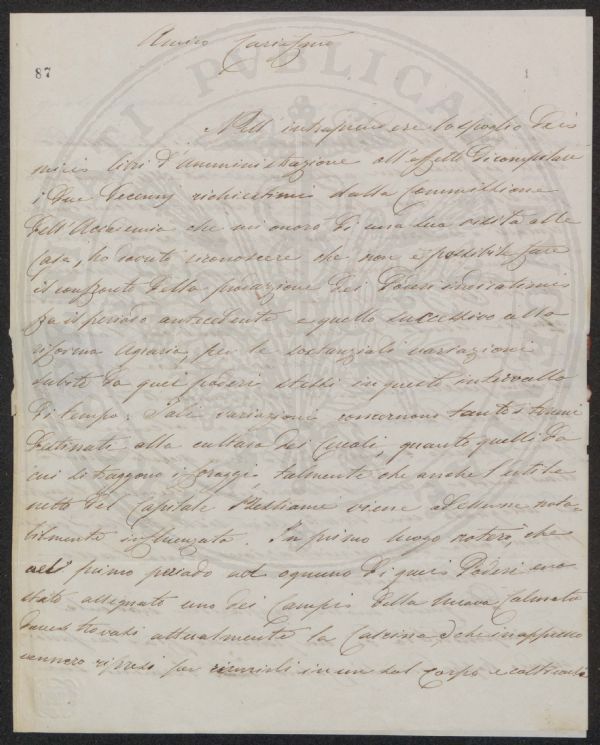 Amico Carissimo
87
1
Nell'intraprendere lo spoglio dei
miei libri d'Amministrazione all'effetto di completare
i due Decennj richiestimi dalla Commissione
dell'Accademia che mi onorò di una sua visita alle
Case, ho dovuto riconoscere che non è possibile fare
il confronto della produzione dei Poderi indicatimi
fra il periodo antecedente e quello successivo alla
riforma Agraria, per le sostanziali variazioni
subite da quei poderi stessi in questo intervallo
di tempo. Tali variazioni concernono tanto i terreni
destinati alla cultura dei Cereali, quanto quelli da
cui si traggono i foraggi, talmente che anche l'utile
netto del Capitale Bestiame viene ad essere nota-
bilmente influenzato. In primo luogo noterò, che
nel primo periodo ad ognuno di quei Poderi era
stato assegnato uno dei Campi della nuova Colmata
dove trovasi attualmente la Cascina, che in appresso
vennero ripresi per riunirli in un sol corpo e coltivarli